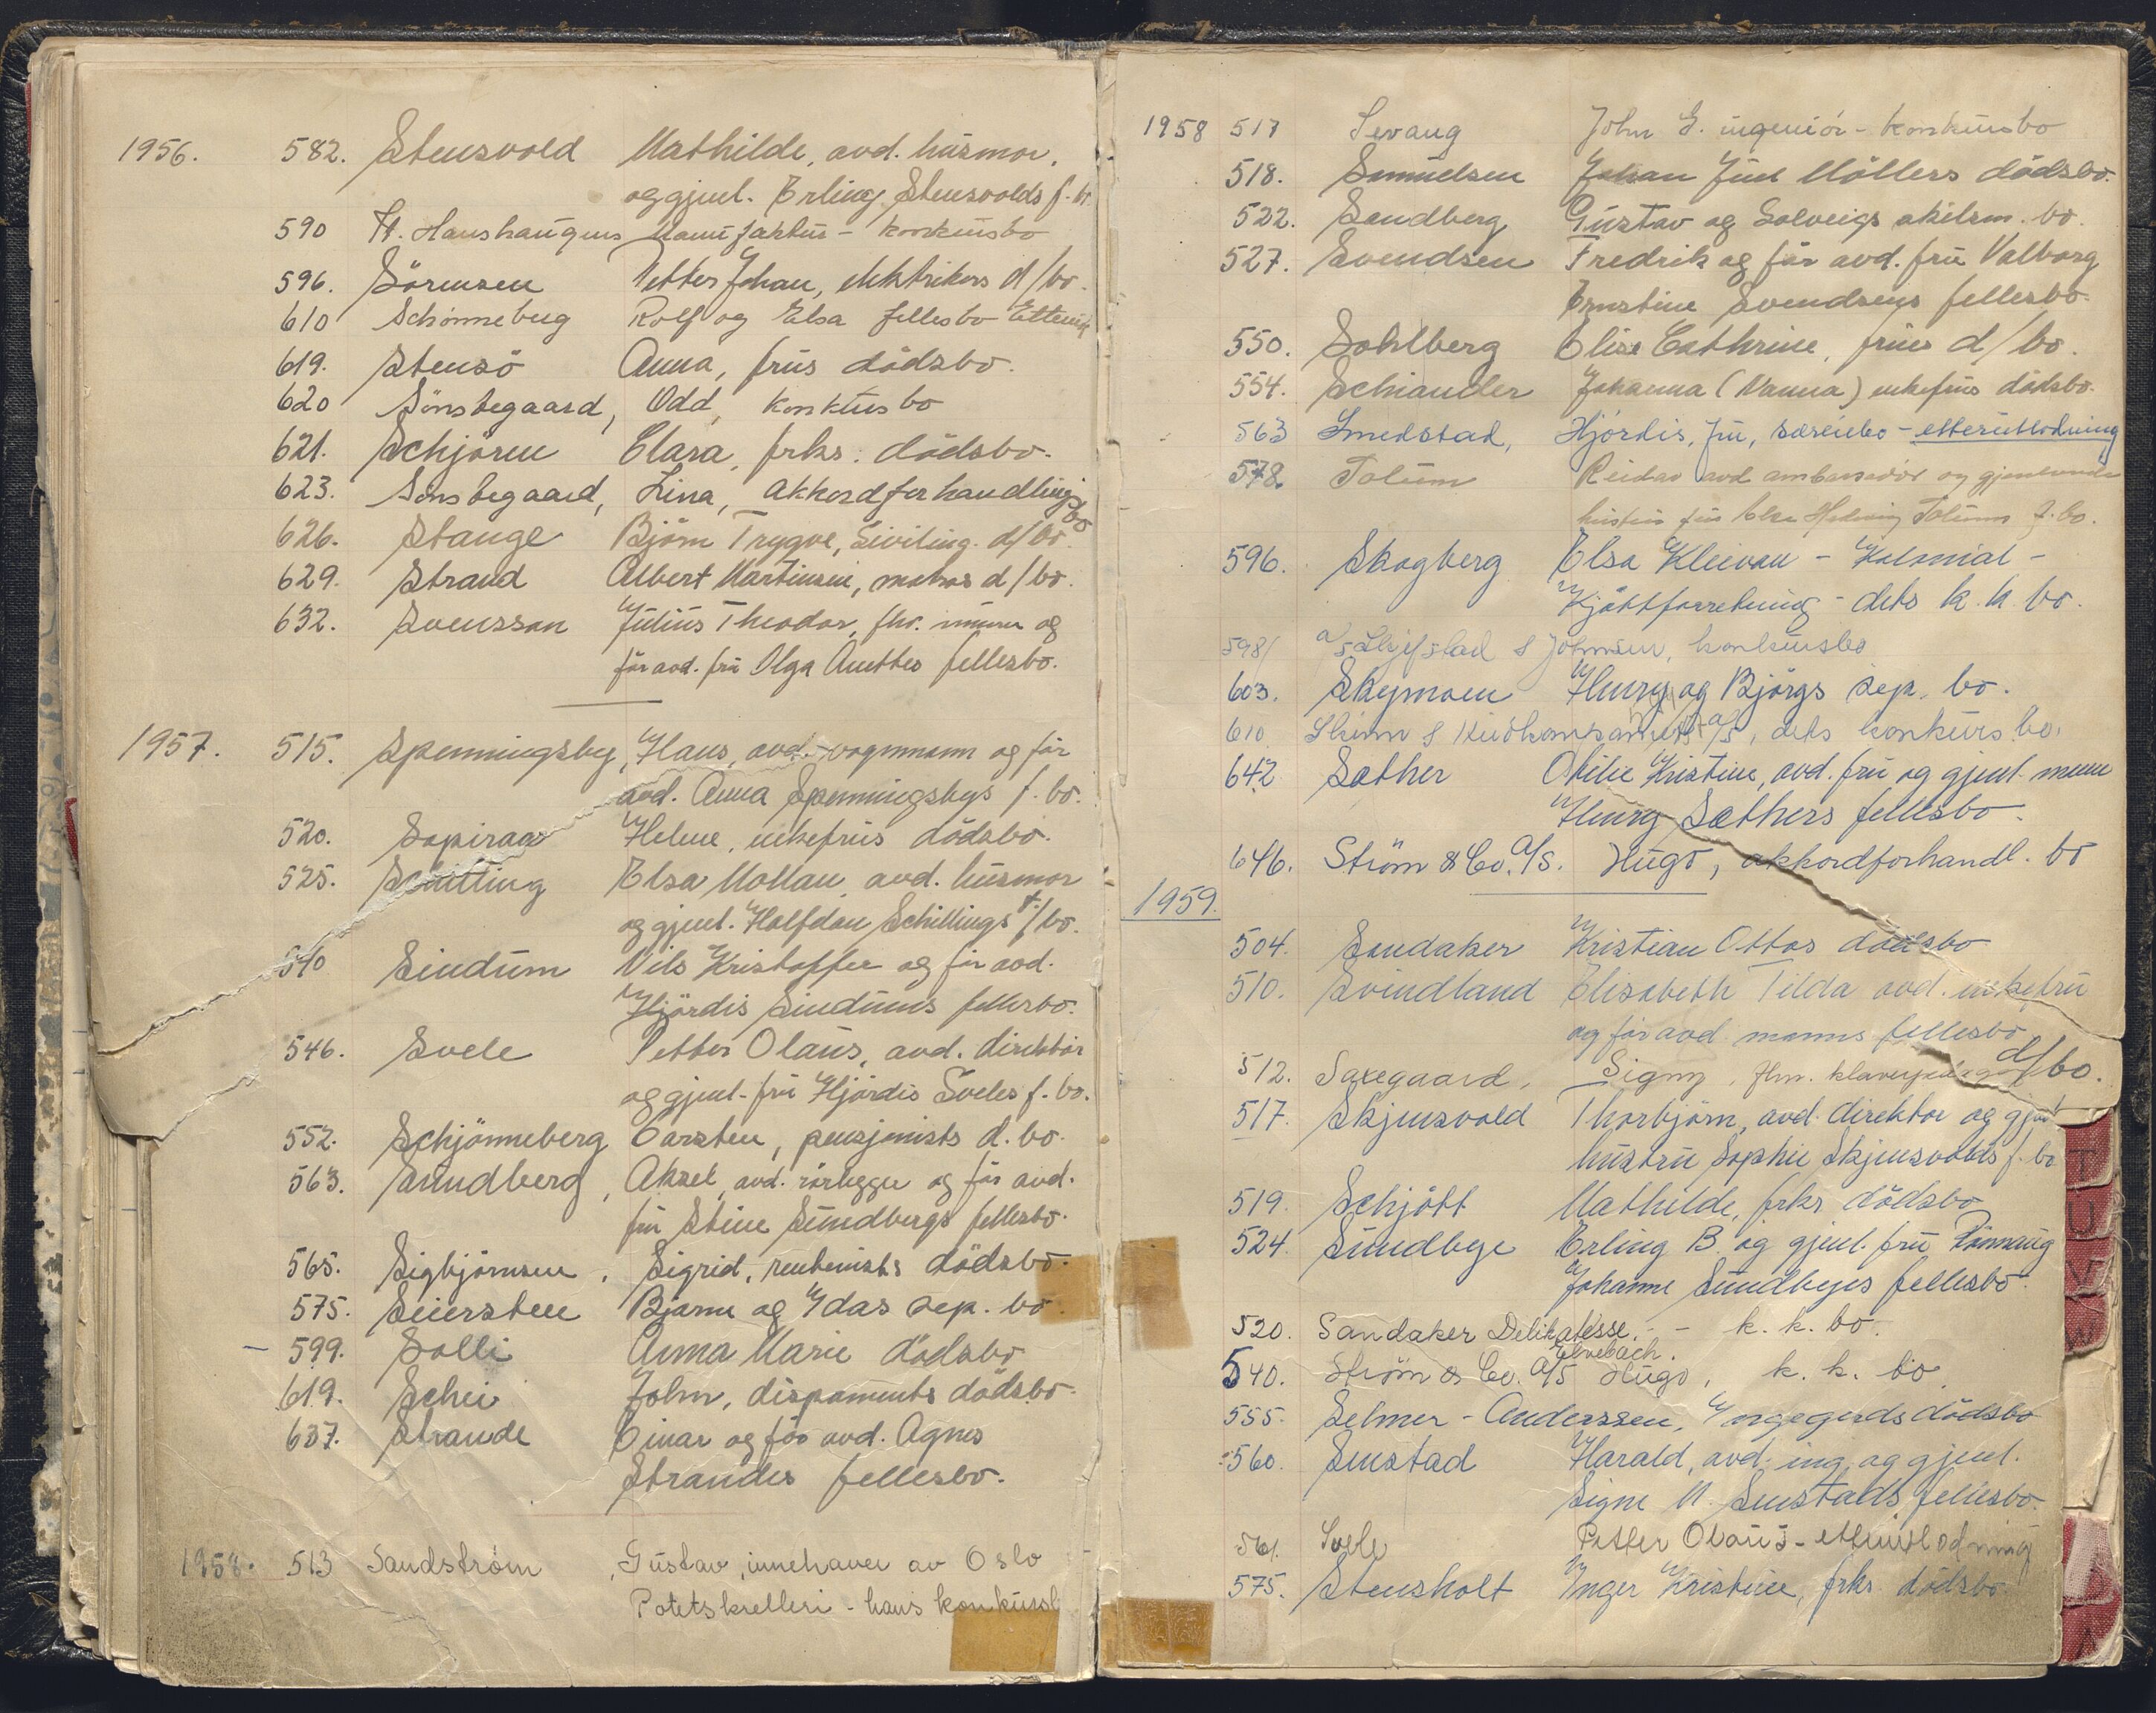 1956. 582. Stensvold Mathilde, avd. husmor,
og gjenl. Erling Stensvolds f. bo
590 St. Hanshaugens Manufaktur - konkursbo
596. Sörensen Petter Johan, elektrikers d/bo.
610 Schönneberg Rolf og Elsa fellesbo
619. Stensö Anna, frus dödsbo.
620 Sönstegaard, Odd, konkursbo
621. Schjören Clara, frks. dödsbo.
623. Sönstegaard, Lina, akkordforhandlings bo
626. Stange Björn Trygve, Siviling. d/bo.
629. Strand Albert Martinsen, d/bo.
632. Svensson Julius Theodor, fhv. murer og
för avd. fru Olga Anettes fellesbo.
1957. 515. Spenningsby, Hans, avd. vognmann og för
avd. Anna Spenningsbys f. bo.
520. Sapiraas Helene, enkefrus dödsbo.
525. Schilling Elsa Mollau, avd. husmor
og gjenl. Halfdan Schillings f/bo.
540 Sindum Nils Kristoffer og för avd.
Hjördis Sindums fellesbo.
546. Svele Petter Olaus, avd. direktör
og gjenl. fru Hjördis Sveles f. bo.
552. Schjönneberg Carsten, pensjonists d. bo.
563. Sundberg, Aksel, avd. rörlegger og för avd.
fru Stine Sundbergs fellesbo.
565. Sigbjörnsen, Sigrid, rentenists dödsbo.
575. Seiersten Bjarne og Idas sep. bo.
599. Solli Anna Marie dödsbo
619. Schei John, disponents dödsbo.
637. Strande Einar og för avd. Agnes
Strandes fellesbo.
1958. 513 Sandström, Gustav, innehaver av Oslo
Potetskrelleri - hans konkursb
1958 517 Sevang John E. ingeniör - konkursbo
518. Samuelsen Johan Juul Möllers dödsbo.
522. Sandberg Gustav og Solveigs skilsm. bo.
527. Svendsen Fredrik og för avd. fru Valborg
Ernstine Svendsens fellesbo.
550. Sohlberg Elise Cathrine, frues d/bo.
554. Schiander Johanna (Nanna) enkefrus dödsbo.
563 Smedstad, Hjördis, fru, særeiebo - etterutlodning
578. Solum Reidar avd ambassadör og gjenlevende
hustru fru Else Hedevig Solums f. bo.
596. Skogberg Elsa Kleivan - Kolonial -
Kjöttforretning - dets k. k. bo.
598/ a/s Skjefstad & Johnsen, konkursbo
603. Skymoen Henry og Björgs sep. bo.
610 Skinn & Hudkompaniets a/s, dets konkurs bo.
642 Sæther Otilie Kristine, avd. fru og gjenl. mann
Henry Sæthers fellesbo.
646. Ström & Co. A/S. Hugo, akkordforhandl. bo
1959.
504. Sandaker Kristian Ottos dödsbo
510. Svindland Elisabeth Tilda avd. enkefru
og för avd. manns fellesbo
512. Saxegaard, Signy, fhv. klaverpedagog d/bo.
517. Skjensvold Thorbjörn, avd. direktör og gjenl.
hustru Sophie Skjensvolds f. bo
519. Schjött Mathilde, frks dödsbo
524. Sundbye Erling B. og gjenl. fru Rönnaug
Johanne Sundbyes fellesbo.
520. Sandaker Delikatesse. - - k. k. bo.
Elvebach.
540. Ström & Co. A/S Hugo, k. k. bo
555. Selmer - Anderssen, Yngegerds dödsbo
560. Senstad Harald, avd. ing. og gjenl.
Signe M. Senstads fellesbo.
561. Svele Petter Olaus - etterutlodning
575. Stensholt Inger Kristine, frks. dödsbo
T
U
V
W